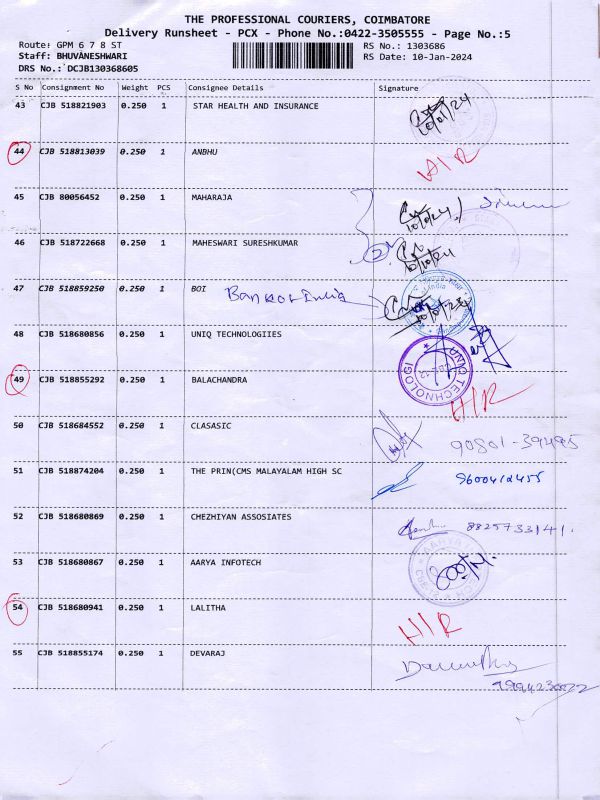 THE PROFESSIONAL COURIERS, COIMBATORE
Delivery Runsheet - PCX - Phone No.:0422-3505555 - Page No.:5
Route: GPM 6 7 8 ST RS No.: 1303686
Staff: BHUVANESHWARI RS Date: 10-Jan-2024
DRS No.: DCJB130368605
S No Consignment No Weight PCS Consignee Details Signature
43 CJB 518821903 0.250 1 STAR HEALTH AND INSURANCE 10/01/24
44 CJB 518813039 0.250 1 ANBHU HIR
45 CJB 80056452 0.250 1 MAHARAJA 10/01/24
46 CJB 518722668 0.250 1 MAHESWARI SURESHKUMAR
47 CJB 518859250 0.250 1 BOI Bank of India
48 CJB 518680856 0.250 1 UNIQ TECHNOLOGIIES
UNIQ TECHNOLOGI
49 CJB 518855292 0.250 1 BALACHANDRA HIR
50 CJB 518684552 0.250 1 CLASASIC 90801-39495
51 CJB 518874204 0.250 1 THE PRIN(CMS MALAYALAM HIGH SC 9600412455
52 CJB 518680869 0.250 1 CHEZHIYAN ASSOSIATES 8825733141.
53 CJB 518680867 0.250 1 AARYA INFOTECH
AARYA
54 CJB 518680941 0.250 1 LALITHA HIR
55 CJB 518855174 0.250 1 DEVARAJ